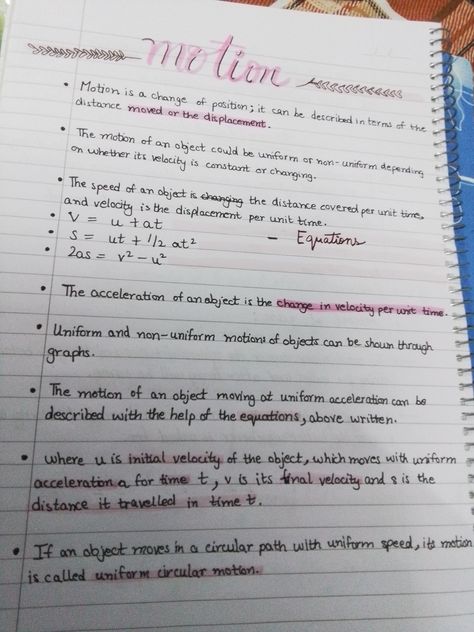 motion
• Motion is a change of position; it can be described in terms of the
distance moved or the displacement.
• The motion of an object could be uniform or non-uniform depending
on whether its velocity is constant or changing.
• The speed of an object is changing the distance covered per unit time,
and velocity is the displacement per unit time.
• V = u + at
• S = ut + 1/2 at² - Equations
• 2as = v² - u²
• The acceleration of an object is the change in velocity per unit time.
• Uniform and non-uniform motions of objects can be shown through
graphs.
• The motion of an object moving at uniform acceleration can be
described with the help of the equations, above written.
• where u is initial velocity of the object, which moves with uniform
acceleration a for time t, v is its final velocity and s is the
distance it travelled in time t.
• If an object moves in a circular path with uniform speed, its motion
is called uniform circular motion.